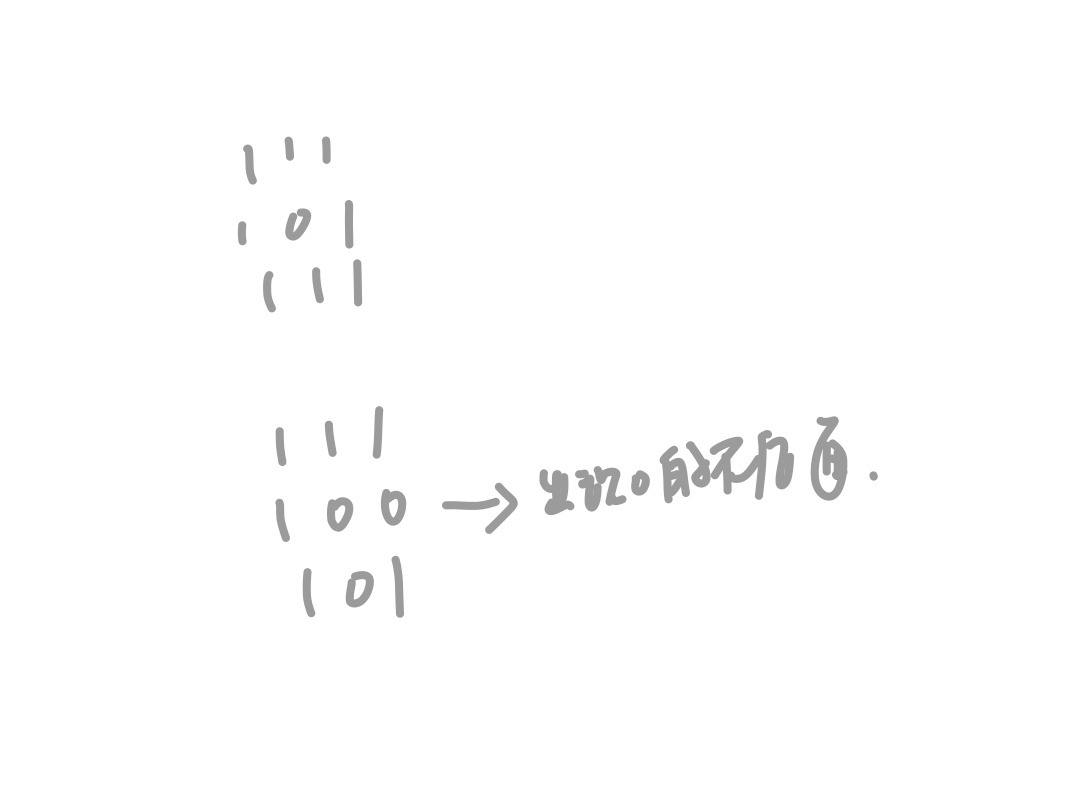 1 1 1
1 0 1
1 1 1
1 1 1
1 0 0 → 出现0的不行
1 0 1